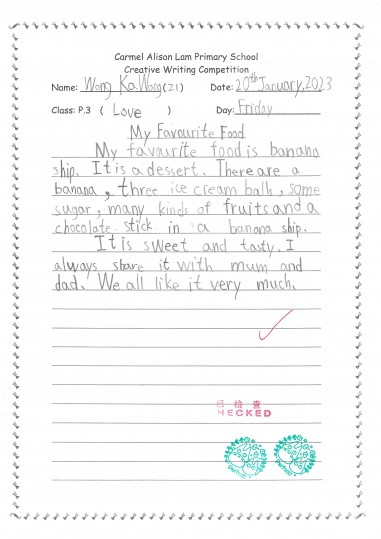 Carmel Alison Lam Primary School
Creative Writing Competition
Name: Wong Ka Wang (21) Date: 20th January, 2023
Class: P.3 ( Love ) Day: Friday
My Favourite Food
My favourite food is banana
ship. It is a dessert. There are a
banana, three ice cream balls, some
sugar, many kinds of fruits and a
chocolate stick in a banana ship.
It is sweet and tasty. I
always share it with mum and
dad. We all like it very much.
已檢查
HECKED